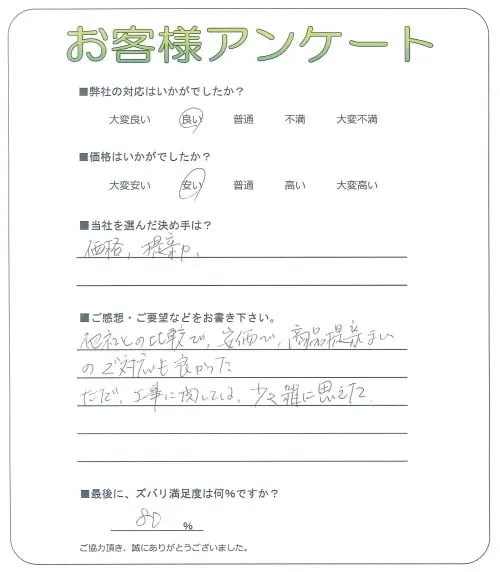 お客様アンケート
■弊社の対応はいかがでしたか？
大変良い 良い 普通 不満 大変不満
■価格はいかがでしたか？
大変安い 安い 普通 高い 大変高い
■当社を選んだ決め手は？
価格，提案力，
■ご感想・ご要望などをお書き下さい。
他社との比較で，安価で，商品提案
のご対応も良かった
ただ，工事に関しては，少々雑に思えた．
■最後に、ズバリ満足度は何%ですか？
80 %
ご協力頂き、誠にありがとうございました。